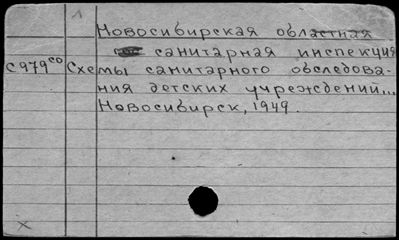 1
Новосибирская областная
санитарная инспекция
С979со Схемы санитарного обследова-
ния детских учреждений...
Новосибирск, 1949.
x